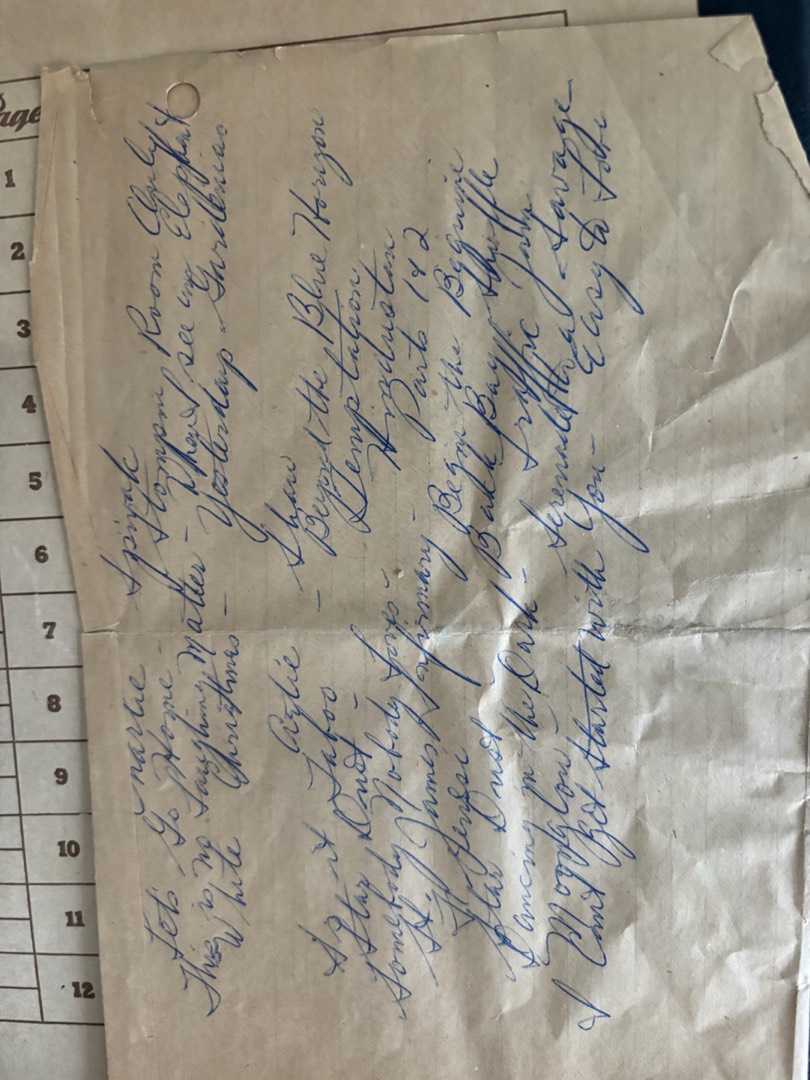 Charlie Spivak
Let's Go Home - Stompin Room Only
This is no Laughing Matter - When I see an Elephant
White Christmas - Yesterdays Gardenias
Artie - Shaw
Is it Taboo Beyond the Blue Horizon
Star Dust - Temptation
Somebody Nobody Loves - Hindustan
St James Infirmary - Parts 1 & 2
Begin the Beguine
Star Dust Back Bay Shuffle
Dancing in the Dark - Traffic Jam
Moonglow - Serenade to a Savage
I Cant Get Started with You - Easy to Love
Page
1
2
3
4
5
6
7
8
9
10
11
12